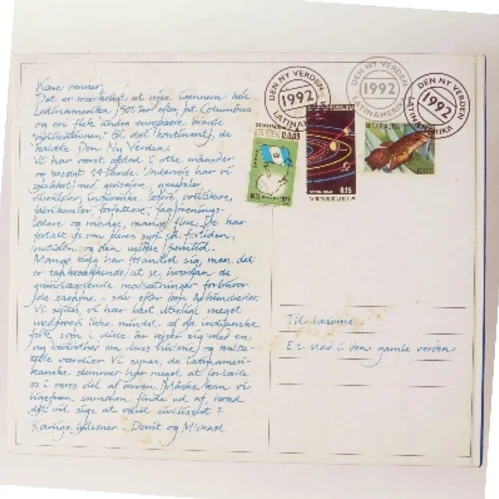 Kære venner.
Det er mærkeligt at rejse igennem hele
Latinamerika 500 år efter, at Columbus
og en flok andre europæere bragte
"civilisationen" til det kontinent, de
kaldte Den Ny Verden.
Vi har været afsted i otte måneder
og besøgt 14 lande. Undervejs har vi
snakket med præsidenter, generaler,
indianske ledere, politikere,
fabrikanter, forfattere, fagforenings-
ledere og mange, mange flere. De har
fortalt os om deres syn på fortiden,
nutiden og den
Mange ting har forandret sig, men det
er tankevækkende, at se, hvordan de
grundlæggende modsætninger forbliver
de samme - selv efter fem århundreder.
Vi synes, vi har lært utroligt meget
undervejs ikke mindst af de indianske
folk, som i disse år rejser sig med en
ny bevidsthed om deres historie og kultu-
relle værdier. Vi synes, de latinameri-
kanske stemmer har meget at fortælle
os i vores del af verden. Måske kan vi
sammen finde ud af, hvad
det vil sige at være civiliseret?
Kærlige hilsener. Dorrit og Michael
DEN NY VERDEN
1992
LATINAMERIKA
DEN NY VERDEN
1992
LATINAMERIKA
DEN NY VERDEN
1992
LATINAMERIKA
0.15
VENEZUELA
Til læserne
Et sted i den gamle verden